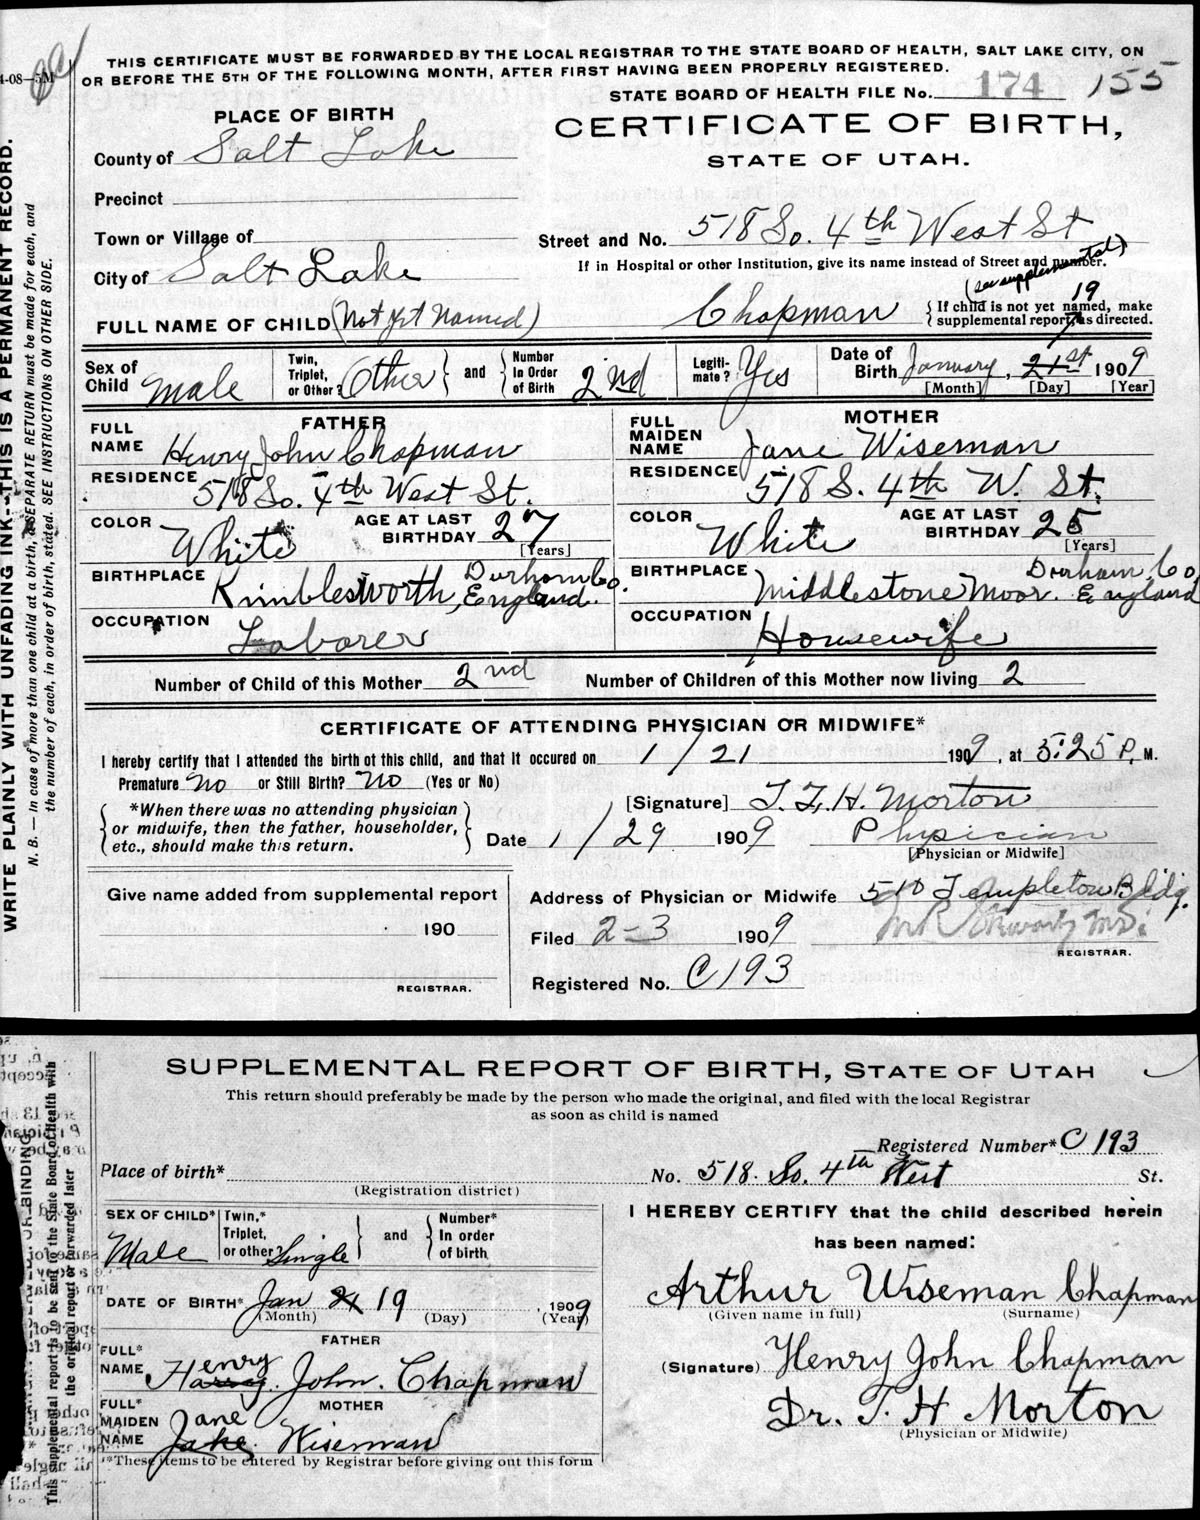 THIS CERTIFICATE MUST BE FORWARDED BY THE LOCAL REGISTRAR TO THE STATE BOARD OF HEALTH, SALT LAKE CITY, ON
OR BEFORE THE 5TH OF THE FOLLOWING MONTH, AFTER FIRST HAVING BEEN PROPERLY REGISTERED.
STATE BOARD OF HEALTH FILE No. 174 155
PLACE OF BIRTH
CERTIFICATE OF BIRTH,
STATE OF UTAH.
County of Salt Lake
Precinct
Town or Village of
Street and No. 518 So. 4th West St
City of Salt Lake
If in Hospital or other Institution, give its name instead of Street and number.
(see supplemental)
FULL NAME OF CHILD (Not yet Named) Chapman
{ If child is not yet named, make supplemental report, as directed.
19
Sex of Child Male
Twin, Triplet, or Other? Other } and { Number In Order of Birth 2nd
Legitimate? Yes
Date of Birth January, 21st 1909
[Month] [Day] [Year]
FATHER
FULL NAME Henry John Chapman
RESIDENCE 518 So. 4th West St.
COLOR White
AGE AT LAST BIRTHDAY 27
[Years]
BIRTHPLACE Kimblesworth, Durham Co. England.
OCCUPATION Laborer
MOTHER
FULL MAIDEN NAME Jane Wiseman
RESIDENCE 518 S. 4th W. St.
COLOR White
AGE AT LAST BIRTHDAY 25
[Years]
BIRTHPLACE Middlestone Moor. Durham Co. England
OCCUPATION Housewife
Number of Child of this Mother 2nd
Number of Children of this Mother now living 2
CERTIFICATE OF ATTENDING PHYSICIAN OR MIDWIFE*
I hereby certify that I attended the birth of this child, and that it occured on 1/21 1909, at 5:25 P. M.
Premature No or Still Birth? No (Yes or No)
*When there was no attending physician
or midwife, then the father, householder,
etc., should make this return.
[Signature] T. F. H. Morton
Date 1/29 1909 Physician
[Physician or Midwife]
Give name added from supplemental report
190
REGISTRAR.
Address of Physician or Midwife 510 Templeton Bldg.
Filed 2-3 1909
REGISTRAR.
Registered No. C193
WRITE PLAINLY WITH UNFADING INK--THIS IS A PERMANENT RECORD.
N. B. — In case of more than one child at a birth, a SEPARATE RETURN must be made for each, and
the number of each, in order of birth, stated. SEE INSTRUCTIONS ON OTHER SIDE.
SUPPLEMENTAL REPORT OF BIRTH, STATE OF UTAH
This return should preferably be made by the person who made the original, and filed with the local Registrar
as soon as child is named
Registered Number* C 193
Place of birth* No. 518. So. 4th West St.
(Registration district)
SEX OF CHILD* Male
Twin,* Triplet, or other? Single } and { Number* In order of birth
DATE OF BIRTH* Jan 21 19 1909
(Month) (Day) (Year)
FATHER
FULL* NAME Harry Henry John. Chapman
MOTHER
FULL* MAIDEN NAME Jake Jane Wiseman
*These items to be entered by Registrar before giving out this form
I HEREBY CERTIFY that the child described herein
has been named:
Arthur Wiseman Chapman
(Given name in full) (Surname)
(Signature) Henry John Chapman
Dr. T. H Morton
(Physician or Midwife)
This supplemental report is to be sent to the State Board of Health with
the original report or forwarded later